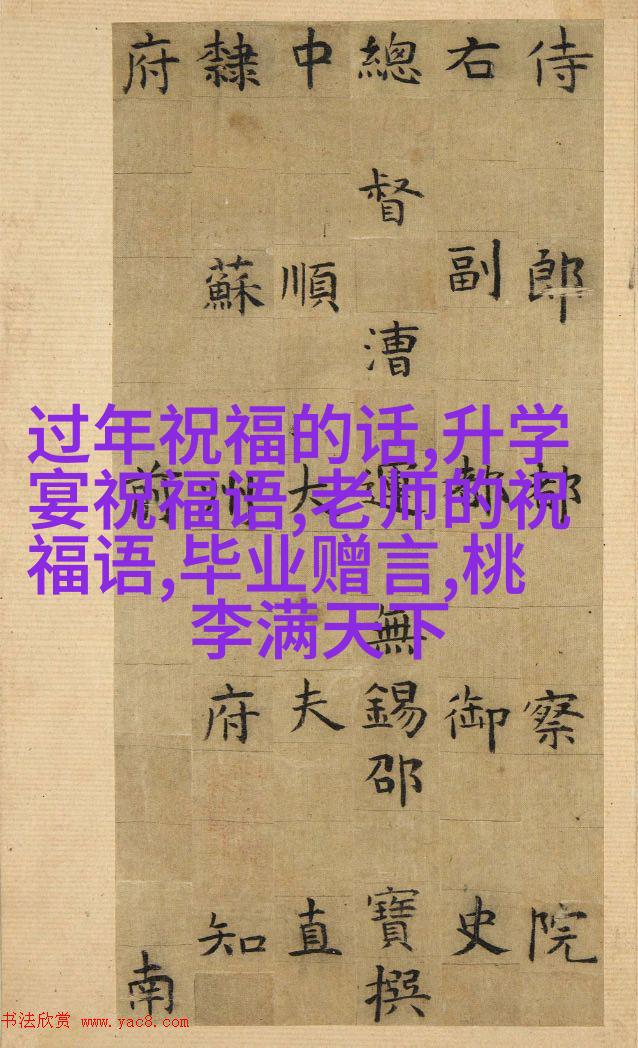 侍郎都察院
右副都御史
總督漕運無錫邵寶撰
中順大夫直
隸蘇州府知
府前南
过年祝福的话,升学
宴祝福语,老师的祝
福语,毕业赠言,桃
李满天下
书法欣赏 www.yac8.com